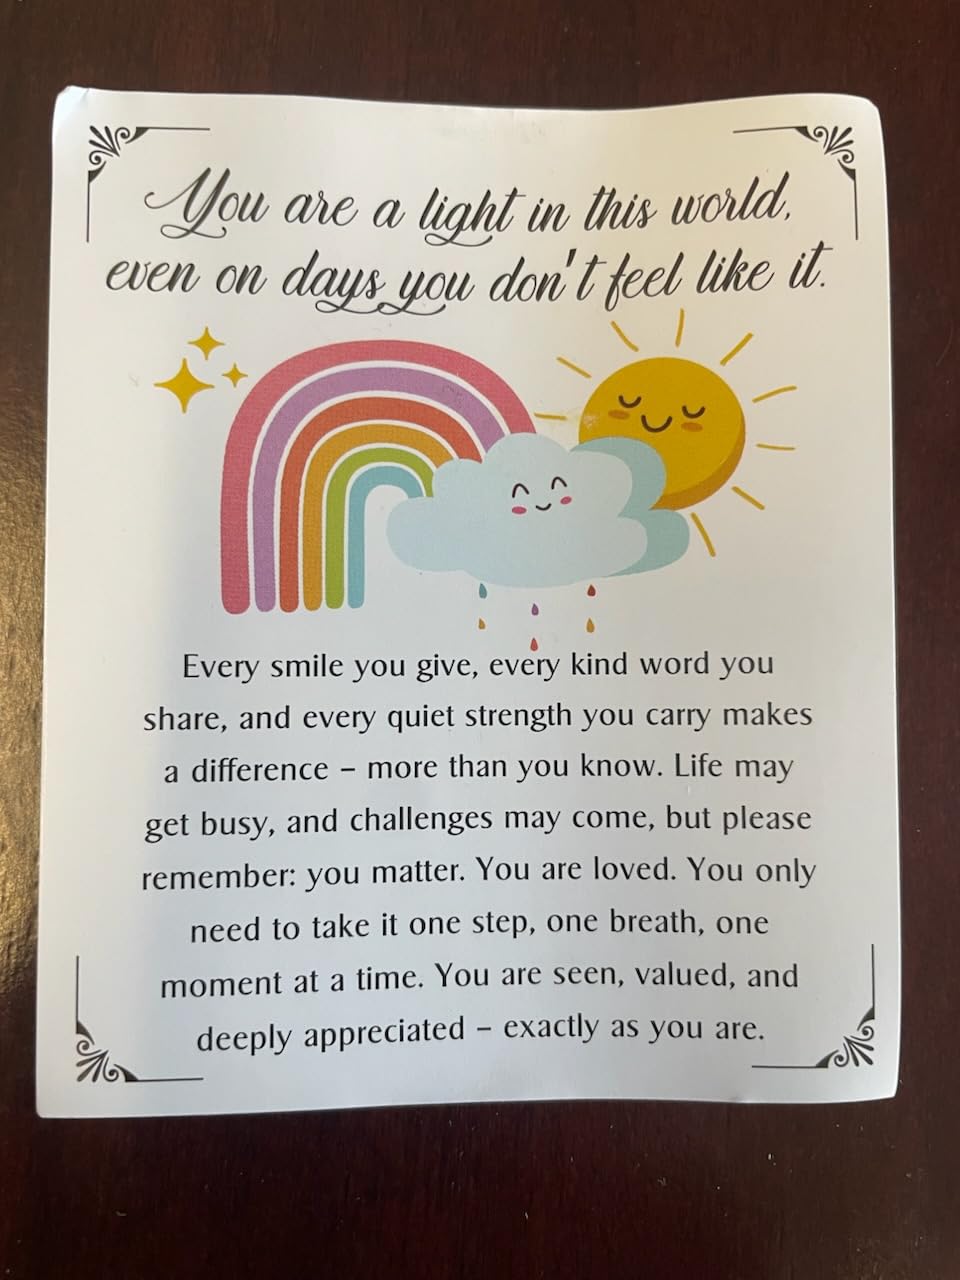 You are a light in this world,
even on days you don't feel like it.
Every smile you give, every kind word you
share, and every quiet strength you carry makes
a difference – more than you know. Life may
get busy, and challenges may come, but please
remember: you matter. You are loved. You only
need to take it one step, one breath, one
moment at a time. You are seen, valued, and
deeply appreciated – exactly as you are.